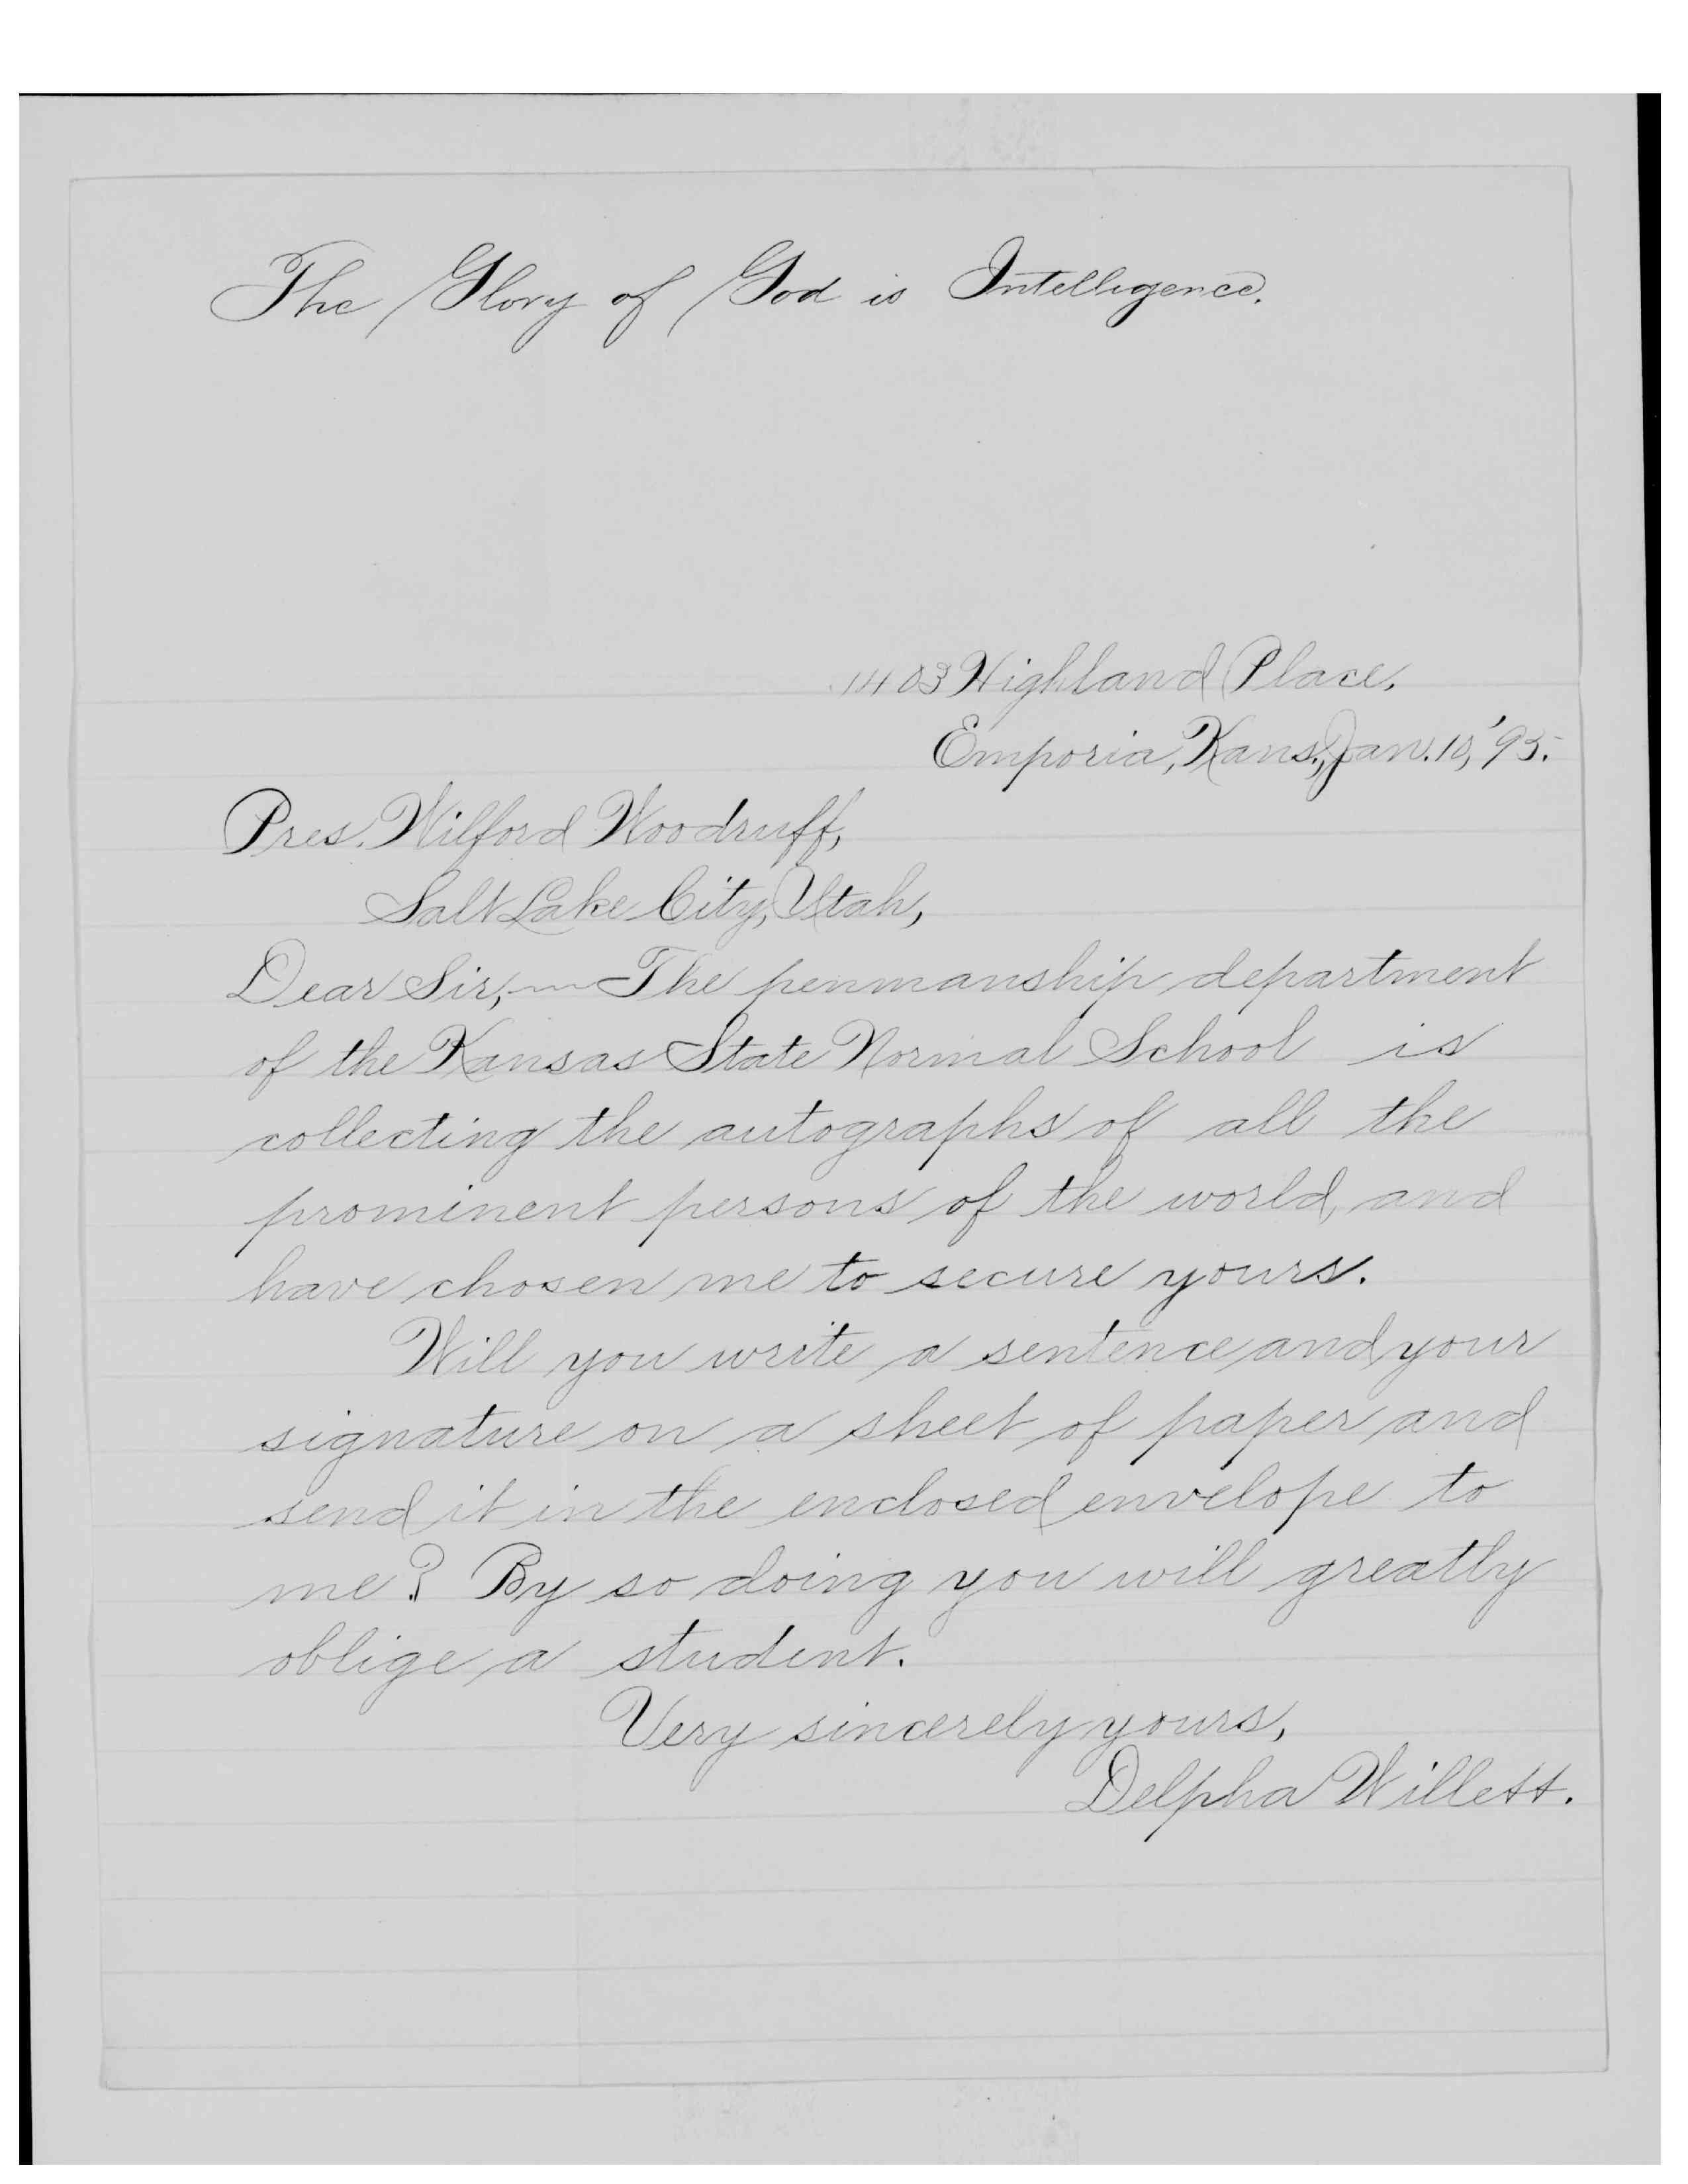 The Glory of God is Intelligence.
1403 Highland Place,
Emporia, Kans., Jan. 10, '95.
Pres. Wilford Woodruff,
Salt Lake City, Utah,
Dear Sir,— The penmanship department
of the Kansas State Normal School is
collecting the autographs of all the
prominent persons of the world, and
have chosen me to secure yours.
Will you write a sentence and your
signature on a sheet of paper and
send it in the enclosed envelope to
me? By so doing you will greatly
oblige a student.
Very sincerely yours,
Delpha Willett.